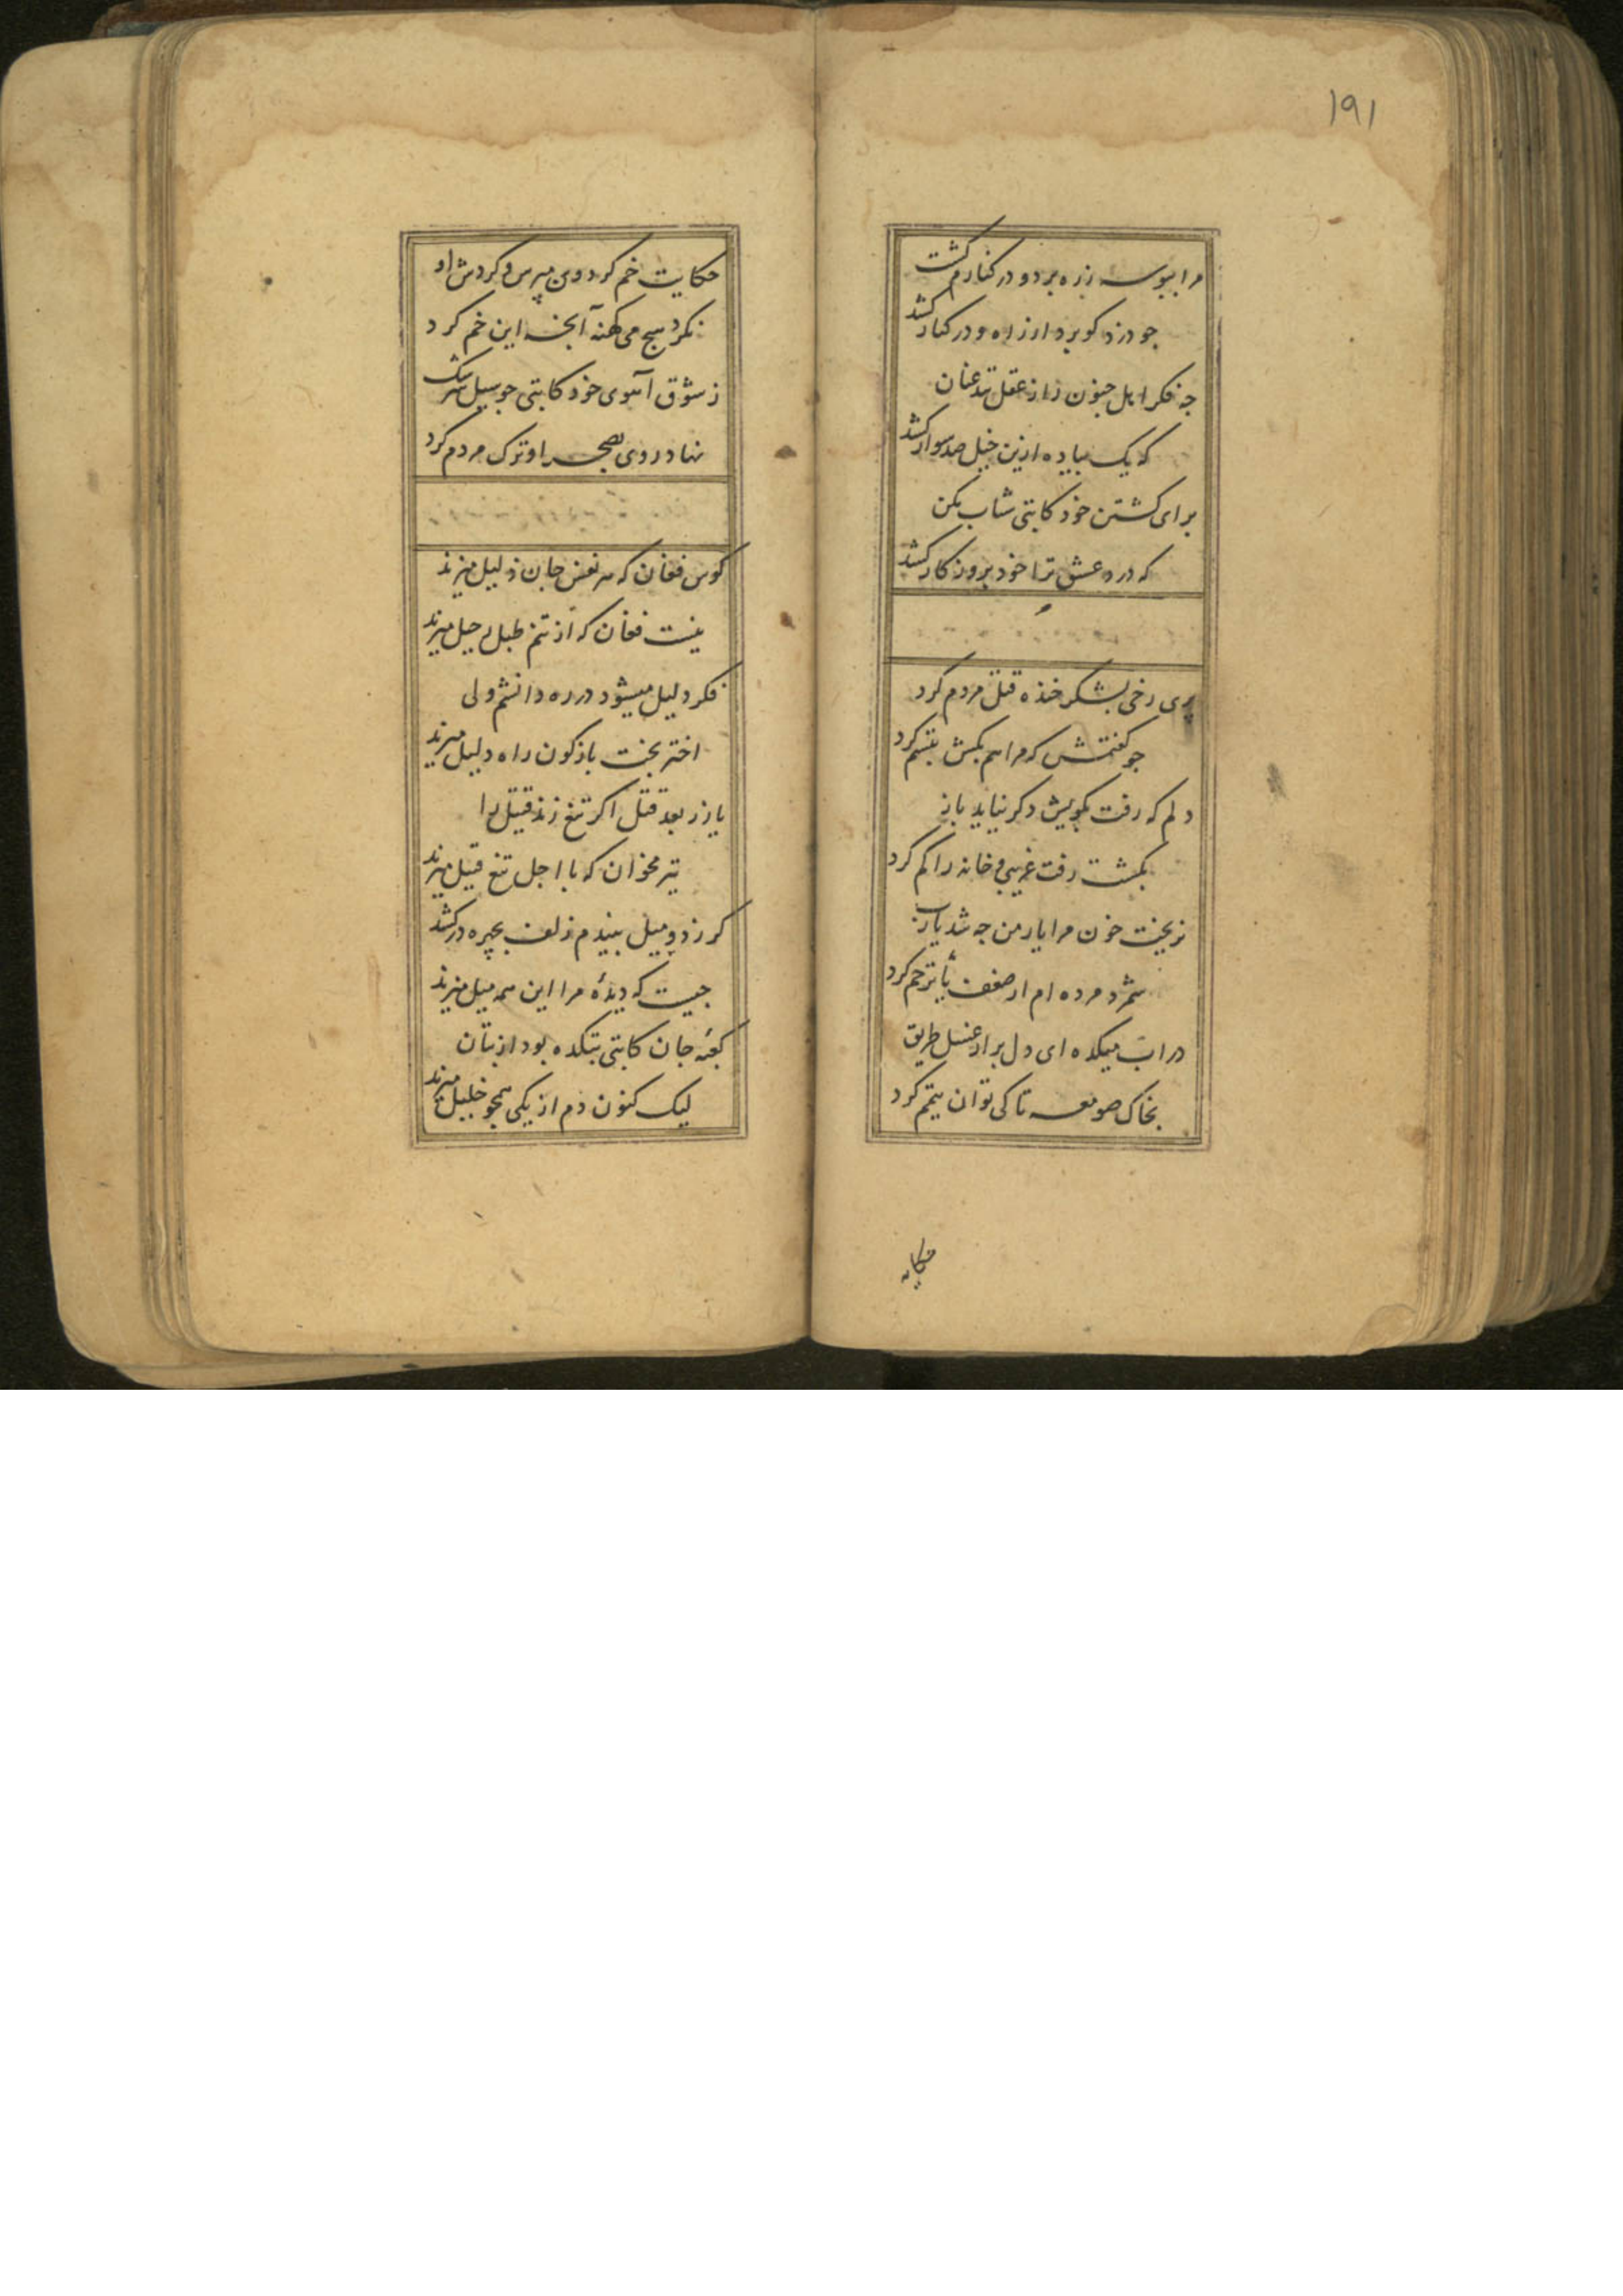 ۱۹۱
مرا ببوسه ز ره برد و در کنارم کشت
جو دزد کو برد از راه و در کنار کشد
جه فکر اهل جنون را ز عقل تند عنان
که یک پیاده ازین خیل صد سوار کشد
برای کشتن خود کاتبی شتاب مکن
که درد عشق ترا خود بروزکار کشد
پری رخی بشکر خنده قتل مردم کرد
جو کفتمش که مرا هم بکش تبسم کرد
دلم که رفت بکویش دکر نیاید باز
بکشت رفت غریبی و خانه را کم کرد
نریخت خون مرا یار من جه شد یارب
شمرد مرده ام از ضعف یا ترحم کرد
در اب میکده ای دل برار غسل طریق
بخاک صومعه تا کی توان تیمم کرد
حکایت
حکایت خم کردون مپرس و کردش او
نکرد هیچ می کهنه آنجه این خم کرد
ز شوق آهوی خود کاتبی جو سیل سرشک
نهاد روی بصحرا و ترک مردم کرد
کوس فغان که هر نفس جان ذلیل میزند
نیست فغان که از تنم طبل رحیل میزند
فکر دلیل میشود در ره دانشم ولی
اختر بخت بازکون راه دلیل میزند
یار ز بعد قتل اکر تیغ زند قتیل را
تیر مخوان که با اجل تیغ قتیل میزند
کر نه دو میل بیندم زلف بجهره در کشد
جیست که دیدهٔ مرا این همه میل میزند
کعبه جان کاتبی بتکده بود از بتان
لیک کنون دم از یکی همجو خلیل میزند